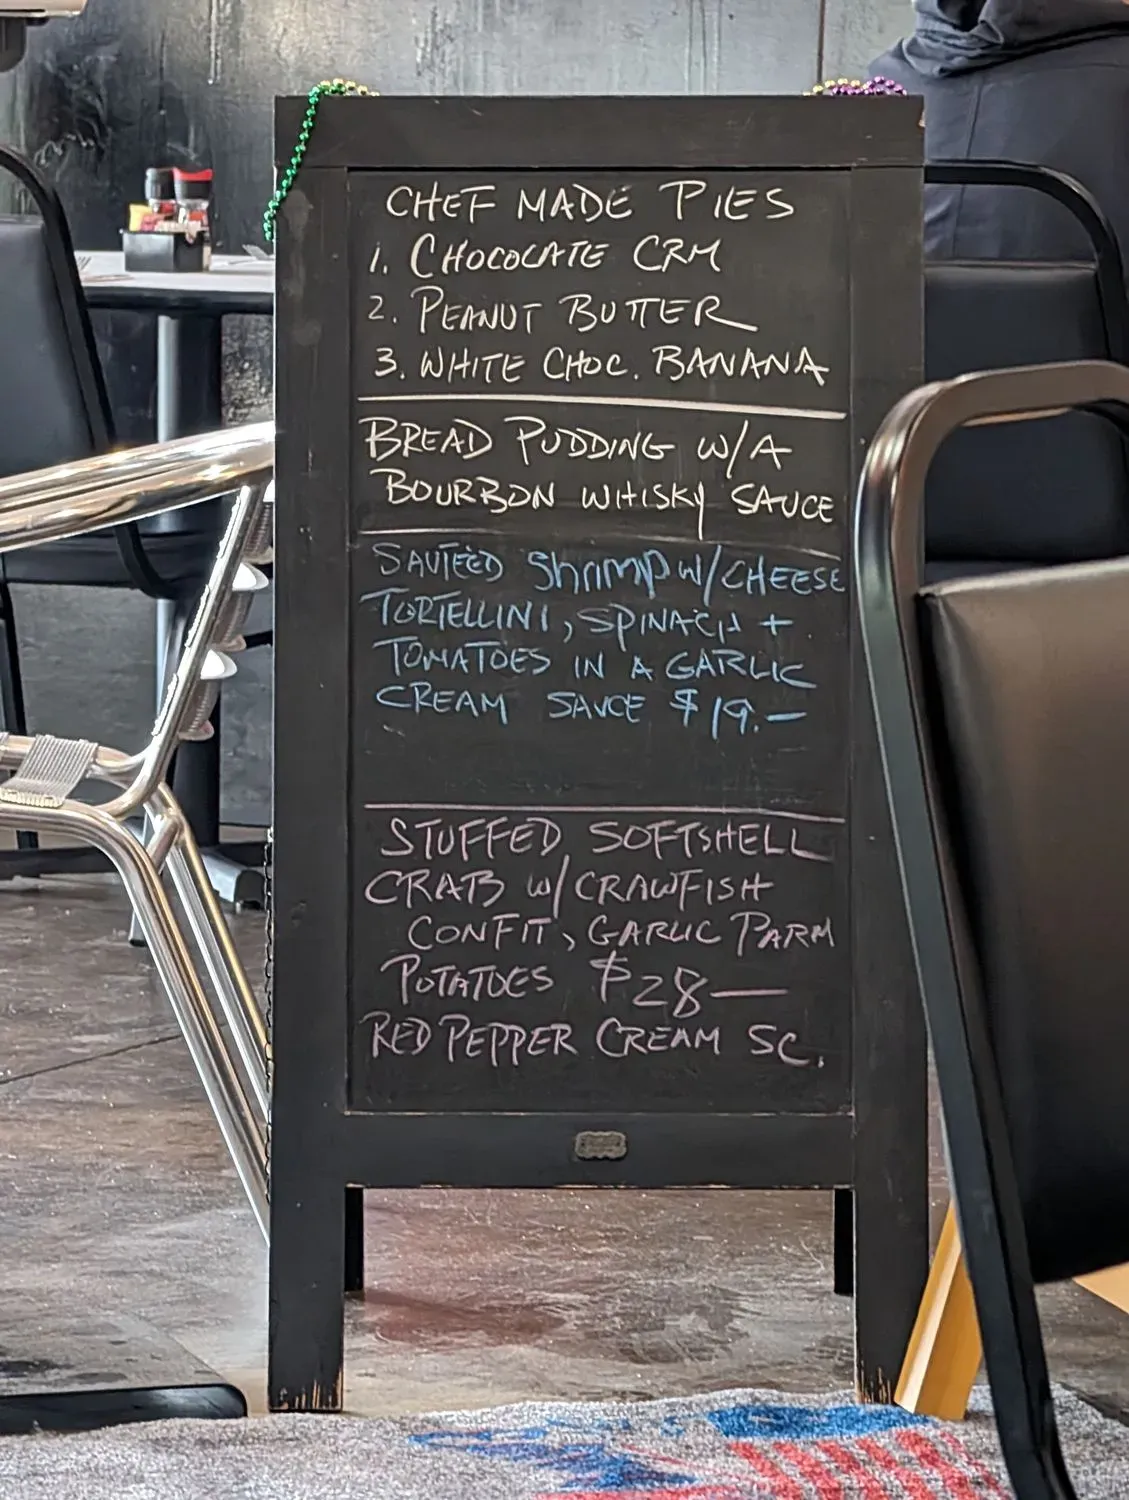 CHEF MADE PIES
1. CHOCOLATE CRM
2. PEANUT BUTTER
3. WHITE CHOC. BANANA
BREAD PUDDING W/A
BOURBON WHISKY SAUCE
SAUTEED ShrimP W/CHEESE
TORTELLINI, SPINACH +
TOMATOES IN A GARLIC
CREAM SAUCE $19.—
STUFFED SOFTSHELL
CRAB W/CRAWFISH
CONFIT, GARLIC PARM
POTATOES $28—
RED PEPPER CREAM SC.